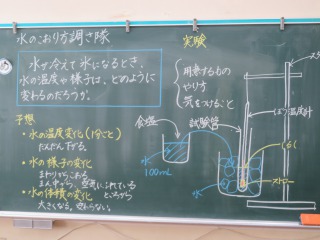 水のこおり方調さ隊
水が冷えて氷になるとき、
水の温度や様子は、どのように
変わるのだろうか。
予想
・水の温度変化(1分ごと)
だんだん下がる。
・水の様子の変化
まわりからこおる
まん中から、空気にふれている
ところから
・水の体積の変化
大きくなる。変わらない。
実験
用意するもの
やり方
気をつけること
食塩
試験管
水
100mL
水
ぼう温度計
ストロー
スタ